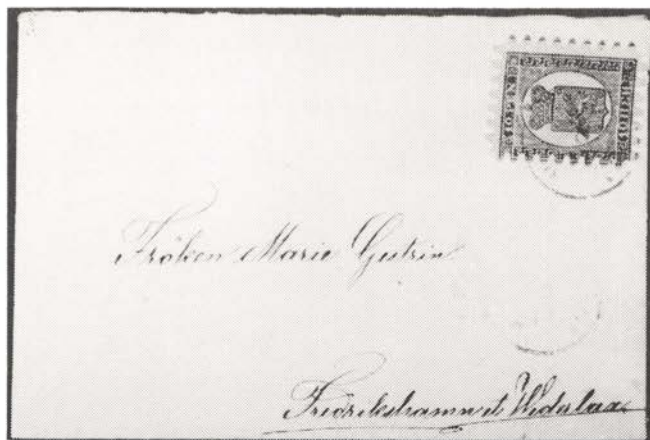 Fröken Marie Gestrin
Fredrikshamn & Wederlax